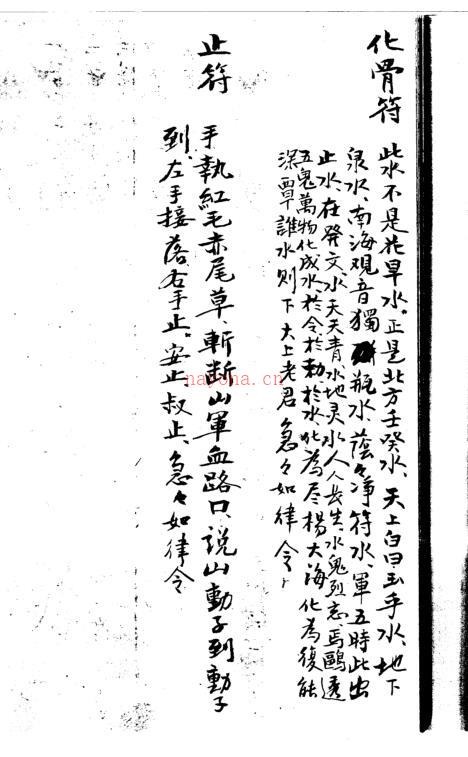 化骨符
此水不是非旱水。正是北方壬癸水、天上白曰玉手水、地下
泉水、南海观音獨瓶水、蔭々净符水、軍五時此出
止水、在癸文、水天天青、水地灵、水人人長生、水鬼烈忘、馬鷗透
五鬼萬物化成水、於令於勅於水、化為尽楊大海化為復能
深覃誰水則下大上老君急々如律令
止符
手執紅毛赤尾草、斬断山軍血路口、說山動子到動子
到、左手接落右手止。安止、叔止、急々如律令
nayona.cn